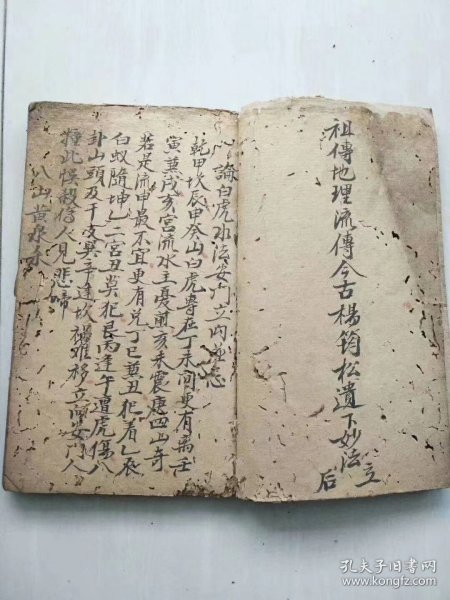 祖傳地理流傳今古楊筠松遺下妙法立
后
論白虎水法安門立向並忌
乾甲坎辰申癸山白虎專在丁未間更有离壬
寅莫戌亥宮流水主凄煎亥未震庭四山寺
若是流申最不宜更有兑丁巳兼丑犯着乙辰
白蚁隨坤乙二宮丑莫犯艮丙逢午遭虎傷八
卦山頭及干支巽辛逢坎禍难移立向安門人
犯此悮殺傷人見悲啼
八山黃泉
孔夫子旧书网
www.kongfz.com